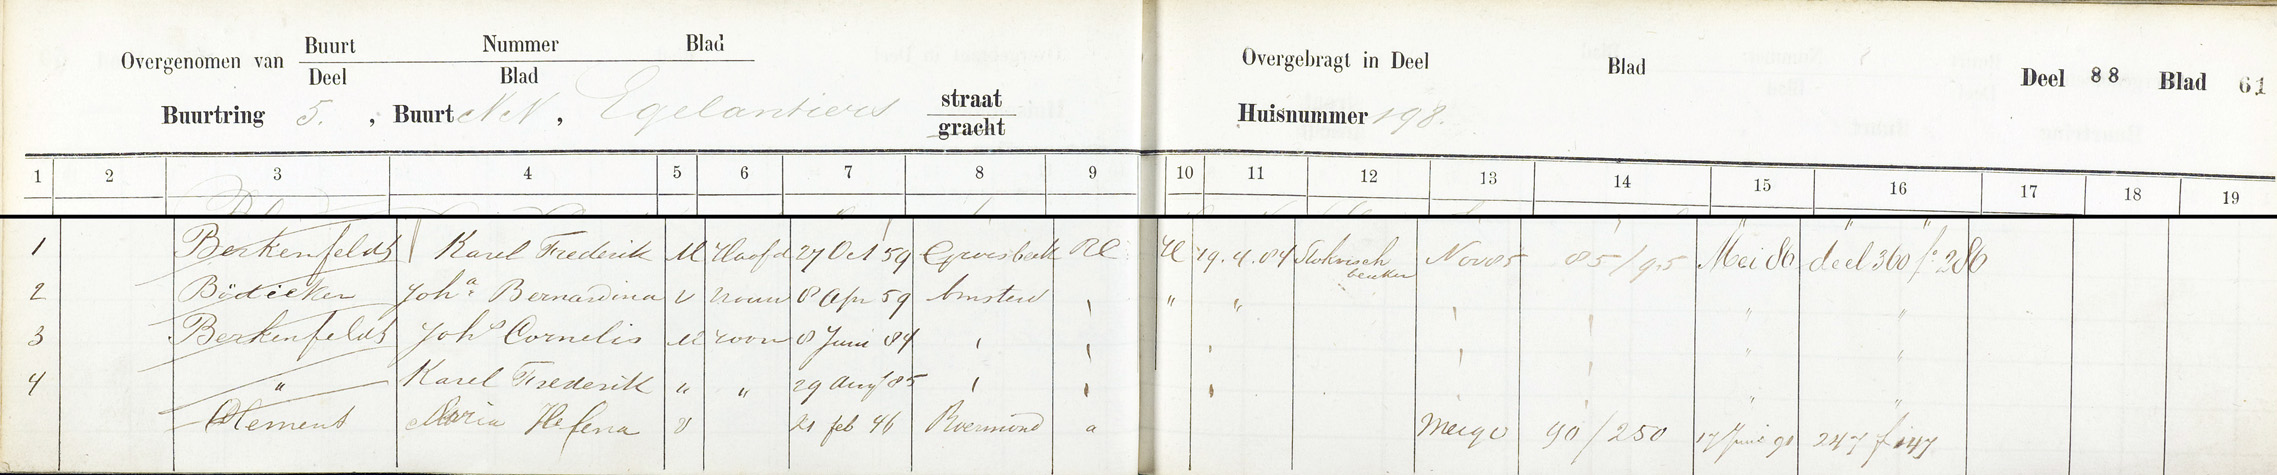 Buurt Nummer Blad
Overgenomen van
Deel Blad
Buurtring 5. , Buurt NN , Egelantiers straat
gracht
Overgebragt in Deel Blad
Huisnummer 198.
Deel 88 Blad 61
1 2 3 4 5 6 7 8 9 10 11 12 13 14 15 16 17 18 19
1 Berkenfeldt Karel Frederik M Hoofd 27 Oct 59 Groesbeek RC H 19.4.84 Stokvisch Nov 85 85/95 Mei 86 deel 360 fo 286
beuker
2 Bödicker Joha. Bernardina V vrouw 8 Apr 59 Amsterd " "
3 Berkenfeldt Johs Cornelis M zoon 8 Juni 84
4 " Karel Frederik " " 29 Aug 85
Clement Maria Helena V 21 feb 46 Roermond Mei 90 90/250 17 Juni 90 247 f 147